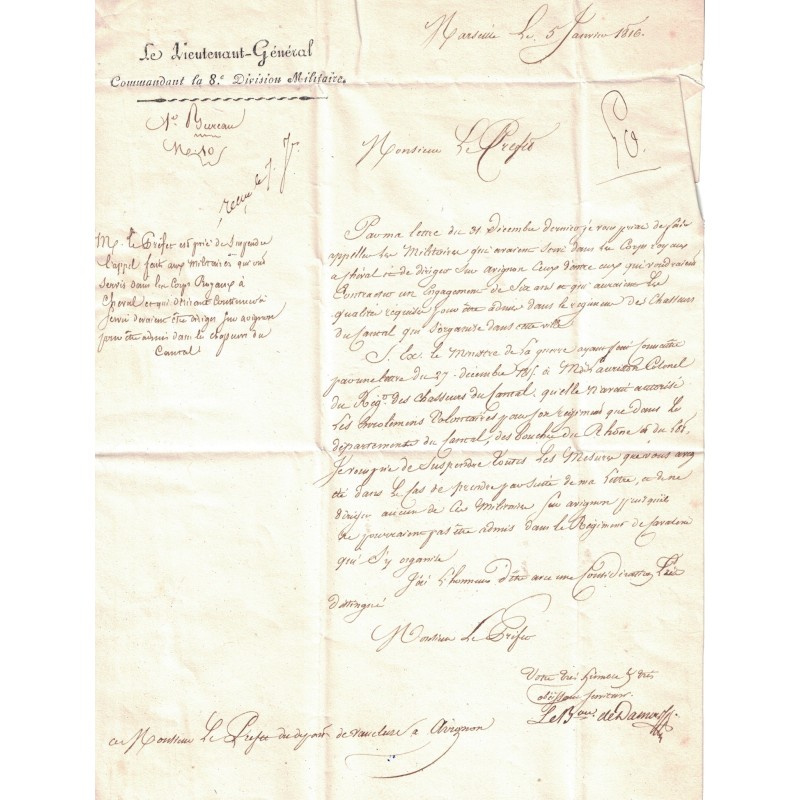 Marseille Le 5 Janvier 1816.
Le Lieutenant-Général
Commandant la 8.e Division Militaire.
1er Bureau
No 10
recu le 7. J.
M. le Préfet est prié de Suspendre
l'appel fait aux militaires qui ont
servis dans les Corps Royaux à
Cheval et qui désirant Continuer à
Servir devaient être dirigés sur avignon
pour être admis dans les chasseurs du
Cantal
Monsieur Le Préfet
Par ma lettre du 31 Décembre dernier je vous priai de faire
appeller les Militaires qui avaient servi dans les Corps royaux
a cheval et de diriger sur avignon Ceux d'entre eux qui voudraient
Contracter un Engagement de Six ans et qui auraient les
qualités requises pour être admis dans le régiment de Chasseurs
du Cantal qui s'organise dans cette ville
S. Exc. le Ministre de la guerre ayant fait connaitre
par une lettre du 27 décembre 1815. à M. Colonel
du Régt. des chasseurs du Cantal, qu'elle n'avait autorisé
Les Enrolemens Volontaires pour son régiment que dans les
départements du Cantal, des bouches du Rhône et du Lot.
Je vous prie de Suspendre toutes Les Mesures que vous avez
été dans le Cas de prendre par suite de ma Lettre, et de ne
diriger aucun de Ces Militaires sur avignon puisqu'ils
ne pourraient pas être admis dans le Régiment de Cavalerie
qui s'y organise
J'ai L'honneur d'être avec une Considération très
distinguée
Monsieur Le Préfet
Votre très humble & très
obéissant Serviteur
Le Bon. de Damas
a Monsieur Le Préfet du départ. de vaucluse a Avignon